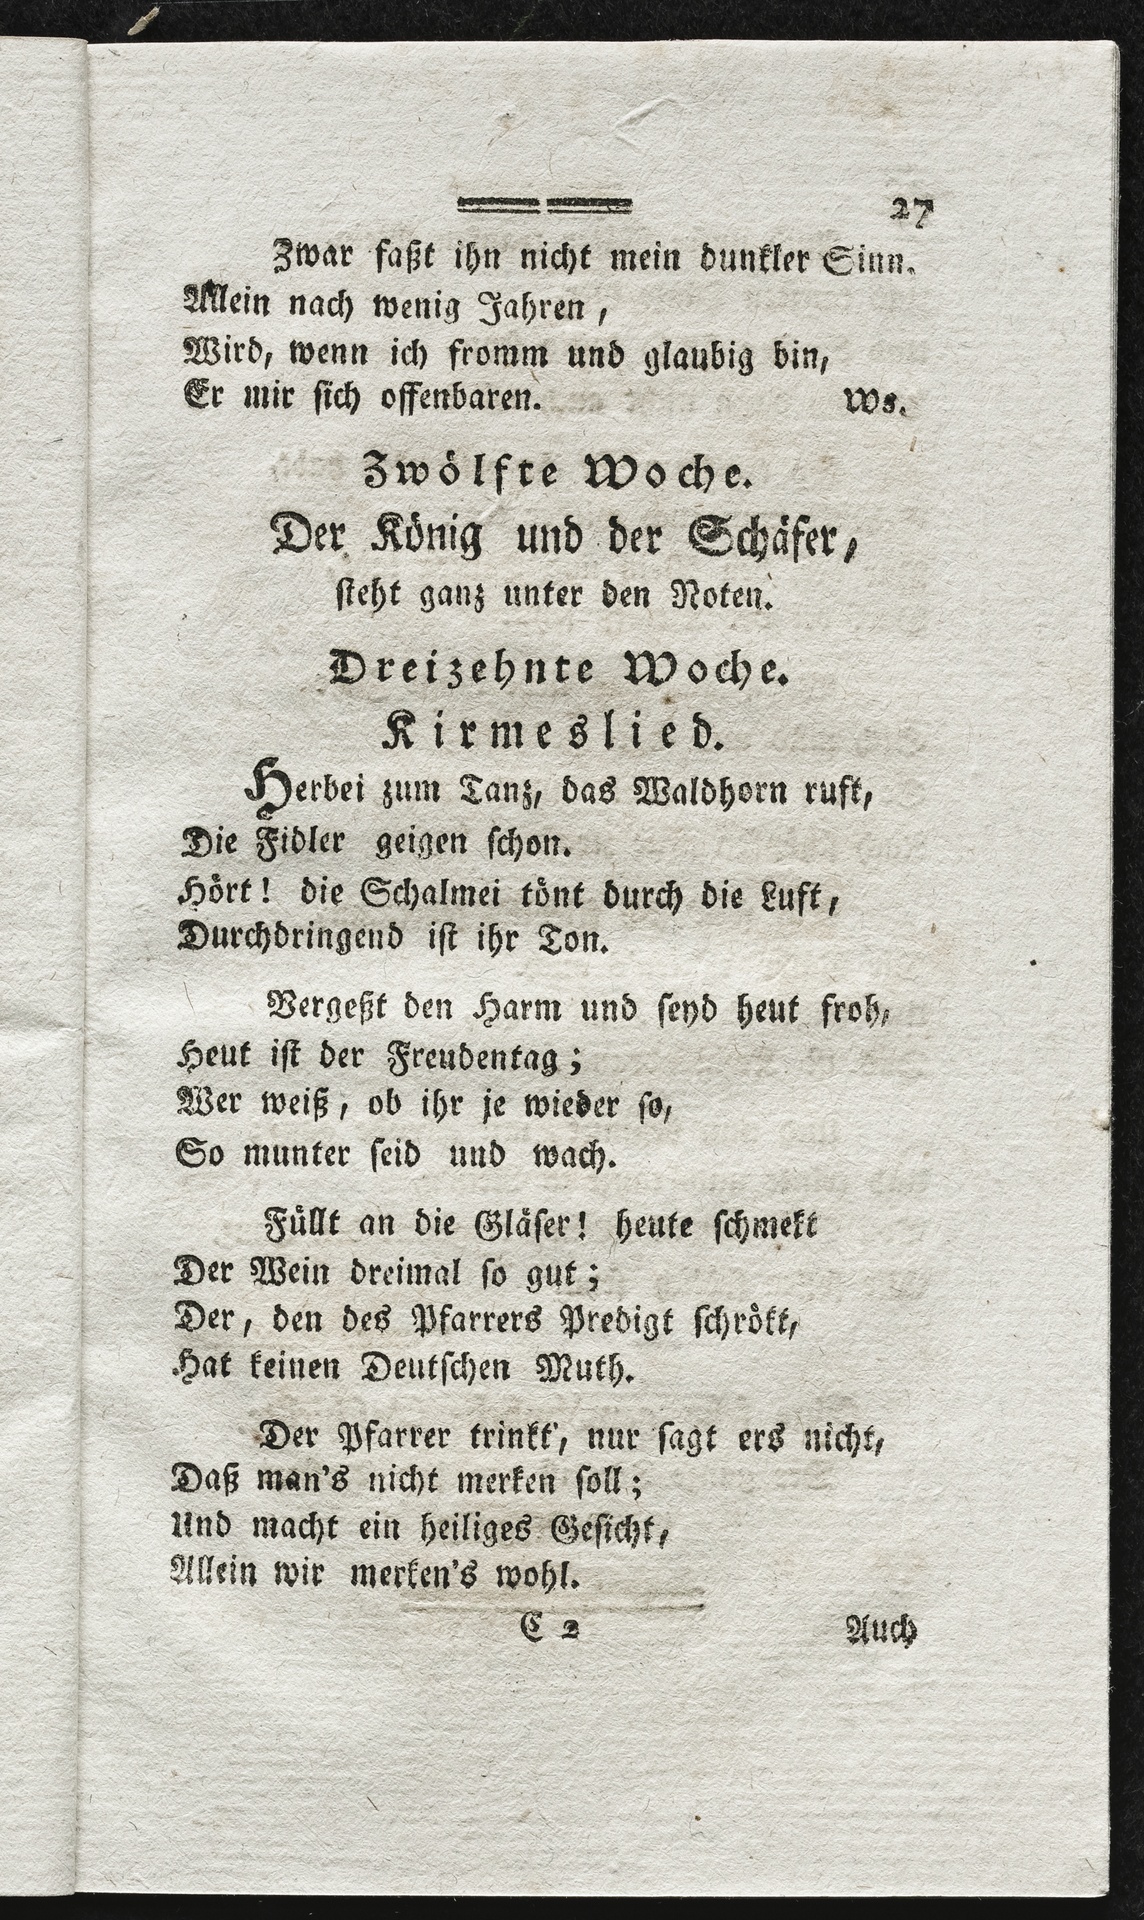 27
Zwar faßt ihn nicht mein dunkler Sinn.
Allein nach wenig Jahren,
Wird, wenn ich fromm und glaubig bin,
Er mir sich offenbaren. Ws.
Zwölfte Woche.
Der König und der Schäfer,
steht ganz unter den Noten.
Dreizehnte Woche.
Kirmeslied.
Herbei zum Tanz, das Waldhorn ruft,
Die Fidler geigen schon.
Hört! die Schalmei tönt durch die Luft,
Durchdringend ist ihr Ton.
Vergeßt den Harm und seyd heut froh,
Heut ist der Freudentag;
Wer weiß, ob ihr je wieder so,
So munter seid und wach.
Füllt an die Gläser! heute schmekt
Der Wein dreimal so gut;
Der, den des Pfarrers Predigt schrökt,
Hat keinen Deutschen Muth.
Der Pfarrer trinkt, nur sagt ers nicht,
Daß man's nicht merken soll;
Und macht ein heiliges Gesicht,
Allein wir merken's wohl.
C 2 Auch